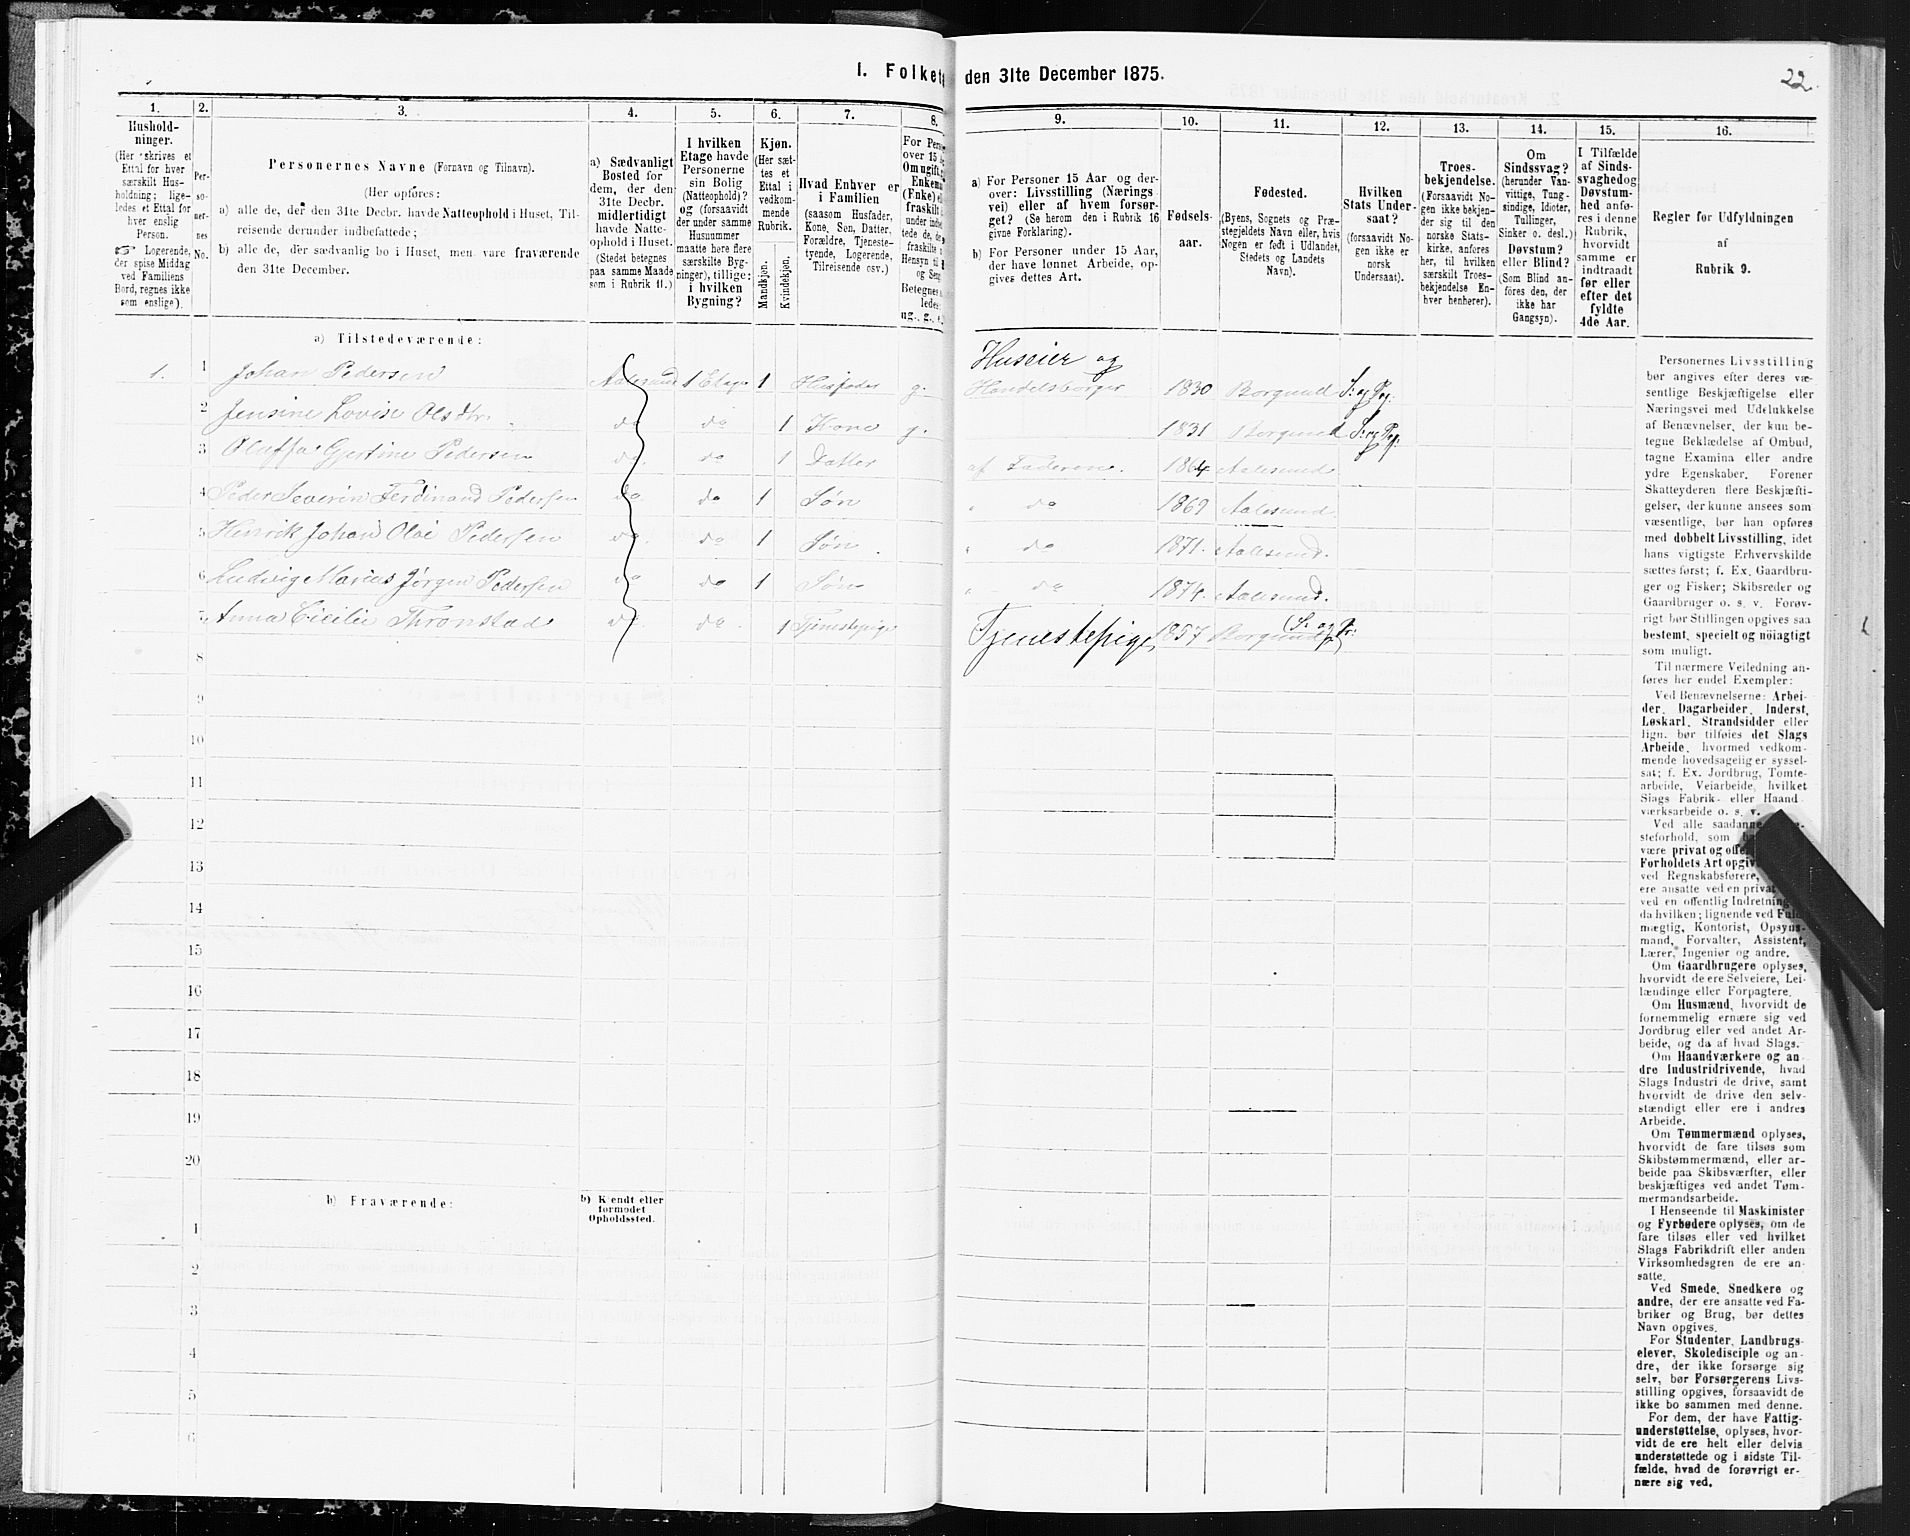 1. Folket
den 31te December 1875.
22.
1.
Hushold-
ninger.
(Her skrives et
Ettal for hver
særskilt Hus-
holdning; lige-
ledes et Ettal for
hver enslig
Person.
☞ Logerende,
der spise Middag
ved Familiens
Bord, regnes ikke
som enslige).
2.
Per-
so-
ner-
nes
No.
3.
Personernes Navne (Fornavn og Tilnavn).
(Her opføres:
a) alle de, der den 31te Decbr. havde Natteophold i Huset, Til-
reisende derunder indbefattede;
b) alle de, der sædvanlig bo i Huset, men vare fraværende
den 31te December.
4.
a) Sædvanligt
Bosted for
dem, der den
31te Decbr.
midlertidigt
havde Natte-
ophold i Huset.
(Stedet betegnes
paa samme Maade
som i Rubrik 11.)
5.
I hvilken
Etage havde
Personerne
sin Bolig
(Natteophold)?
og (forsaavidt
der under samme
Husnummer
matte høre flere
særskilte Byg-
ninger), tillige:
i hvilken
Bygning?
6.
Kjøn.
(Her sæt-
tes et
Ettal i
vedkom-
mende
Rubrik.
Mandkjøn.
Kvindekjøn.
7.
Hvad Enhver er
i Familien
(saasom Husfader,
Kone, Søn, Datter,
Forældre, Tjeneste-
tyende, Logerende,
Tilreisende osv.)
8.
For Pers
over 15 A
Om ugift, g
Enkema
(Enke) el
fraskilt
9.
a) For Personer 15 Aar og der-
over: Livsstilling (Nærings
vei) eller af hvem forsør-
get? (Se herom den i Rubrik 16
givne Forklaring).
b) For Personer under 15 Aar,
der have lønnet Arbeide, op-
gives dettes Art.
10.
Fødsels-
aar.
11.
Fødested.
(Byens, Sognets og Præ-
stegjeldets Navn eller, hvis
Nogen er født i Udlandet,
Stedets og Landets
Navn).
12.
Hvilken
Stats Under-
saat?
(forsaavidt No-
gen ikke er
norsk
Undersaat).
13.
Troes-
bekjendelse.
(Forsaavidt No-
gen ikke bekjen-
der sig til den
norske Stats-
kirke, anføres
her, til hvilken
særskilt Troes-
bekjendelse En-
hver henhører).
14.
Om
Sindssvag?
(herunder Van-
vittige, Tung-
sindige, Idioter,
Tullinger,
Sinker o. desl.)
Døvstum?
eller Blind?
(Som Blind an-
føres den, der
ikke har
Gangsyn).
15.
I Tilfælde
af Sinds-
svaghed og
Døvstum-
hed anfø-
res i denne
Rubrik,
hvorvidt
samme er
indtraadt
før eller
efter det
fyldte
4de Aar.
16.
Regler for Udfyldningen
af
Rubrik 9.
a) Tilstedeværende:
Huseier og
1. 1 Johan Pedersen Aalesund 1 Etage 1 Husfader g. Handelsborger 1830 Borgund S: og Pg:
2 Jensine Lovise Olsdtr. do do 1 Kone g. 1831 Borgund S: og Pg:
3 Oluffa Gjertine Pedersen do. do 1 Datter af Faderen. 1864 Aalesund
4 Peder Severin Ferdinand Pedersen do. do 1 Søn " do 1869 Aalesund
5 Henrik Johan Olai Pedersen do. do 1 Søn. " do 1871. Aalesund.
6 Ludvig Marius Jørgen Pedersen do do 1 Søn " do 1874. Aalesund.
7 Anna Cicilie Thronstad do. do. 1 Tjenestepige Tjenestepige 1857 Borgund (S: og Pr:)
8
9
10
11
12
13
14
15
16
17
18
19
20
b) Fraværende:
b) Kjendt eller
formodet
Opholdssted.
1
2
3
4
5
6
Personernes Livsstilling
bør angives efter deres væ-
sentlige Beskjæftigelse eller
Næringsvei med Udelukkelse
af Benævnelser, der kun be-
tegne Beklædelse af Ombud,
tagne Examina eller andre
ydre Egenskaber. Forener
Skatteyderen flere Beskjæfti-
gelser, der kunne ansees som
væsentlige, bør han opføres
med dobbelt Livsstilling, idet
hans vigtigste Erhvervskilde
sættes først; f. Ex. Gaardbru-
ger og Fisker; Skibsreder og
Gaardbruger o. s. v. Forøv-
rigt bør Stillingen opgives saa
bestemt, specielt og nøiagtigt
som muligt.
Til nærmere Veiledning an-
føres her endel Exempler:
Ved Benævnelserne: Arbei-
der, Dagarbeider, Inderst,
Løskarl, Strandsidder eller
lign. bør tilføies det Slags
Arbeide, hvormed vedkom-
mende hovedsagelig er syssel-
sat; f. Ex. Jordbrug, Tomte-
arbeide, Veiarbeide, hvilket
Slags Fabrik- eller Haand-
værksarbeide o. s. v.
Ved alle saadanne
steforhold, som
være privat og
Forholdets Art
ved Regnskabsførere,
ere ansatte ved en privat
ved en offentlig Indretning
da hvilken; lignende ved Fuld-
mægtig, Kontorist, Opsyns-
mand, Forvalter, Assistent,
Lærer, Ingeniør og andre.
Om Gaardbrugere oplyses,
hvorvidt de ere Selveiere, Lei-
lændinge eller Forpagtere.
Om Husmænd, hvorvidt de
fornemmelig ernære sig ved
Jordbrug eller ved andet Ar-
beide, og da af hvad Slags.
Om Haandværkere og an-
dre Industridrivende, hvad
Slags Industri de drive, samt
hvorvidt de drive den selv-
stændigt eller ere i andres
Arbeide.
Om Tømmermænd oplyses,
hvorvidt de fare tilsøs som
Skibstømmermænd, eller ar-
beide paa Skibsværfter, eller
beskjæftiges ved andet Tøm-
mermandsarbeide.
I Henseende til Maskinister
og Fyrbødere oplyses, om de
fare tilsøs eller ved hvilket
Slags Fabrikdrift eller anden
Virksomhedsgren de ere an-
satte.
Ved Smede, Snedkere og
andre, der ere ansatte ved Fa-
briker og Brug, bør dettes
Navn opgives.
For Studenter, Landbrugs-
elever, Skoledisciple og an-
dre, der ikke forsørge sig
selv, bør Forsørgerens Livs-
stilling opgives, forsaavidt de
ikke bo sammen med denne.
For dem, der have Fattig-
understøttelse, oplyses, hvor-
vidt de ere helt eller delvis
understøttede og i sidste Til-
fælde, hvad de forøvrigt er-
nære sig ved.